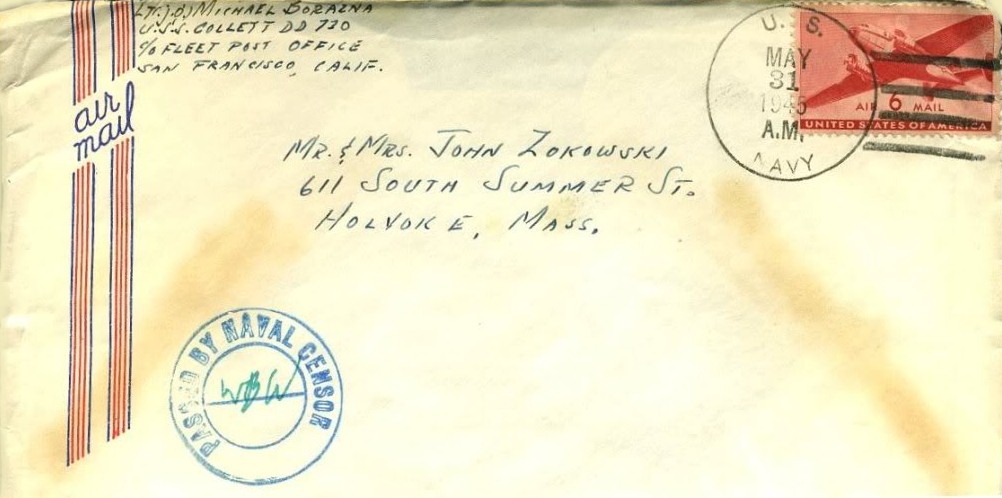 Lt.(j.g.) MICHAEL BORAZNA
U.S.S. COLLETT DD 730
c/o FLEET POST OFFICE
SAN FRANCISCO, CALIF.
air
mail
U. S.
MAY
31
1945
A.M.
NAVY
AIR 6 MAIL
UNITED STATES OF AMERICA
MR. & MRS. JOHN ZOKOWSKI
611 SOUTH SUMMER ST.
HOLYOKE, MASS.
PASSED BY NAVAL CENSOR
WBW